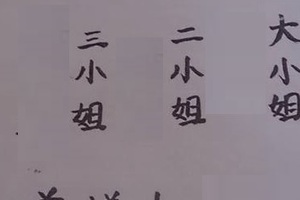 大小姐
二小姐
三小姐